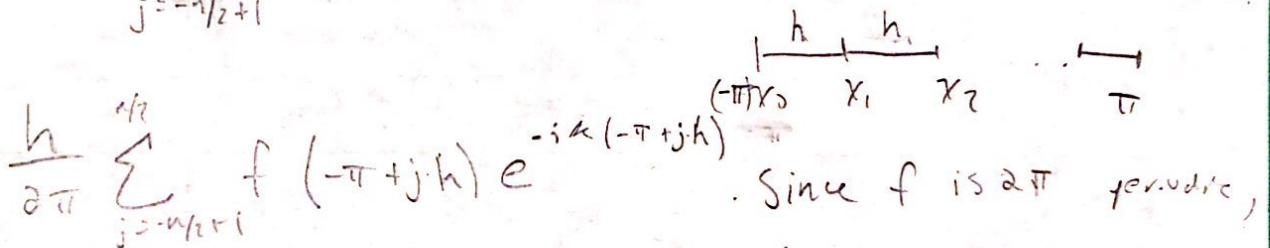 j=-n/2+1
h h
(-π)x₀ x₁ x₂ ... π
h/2π ∑_{j=-n/2+1}^{n/2} f(-π+j·h) e^{-ik(-π+j·h)}. Since f is 2π periodic,